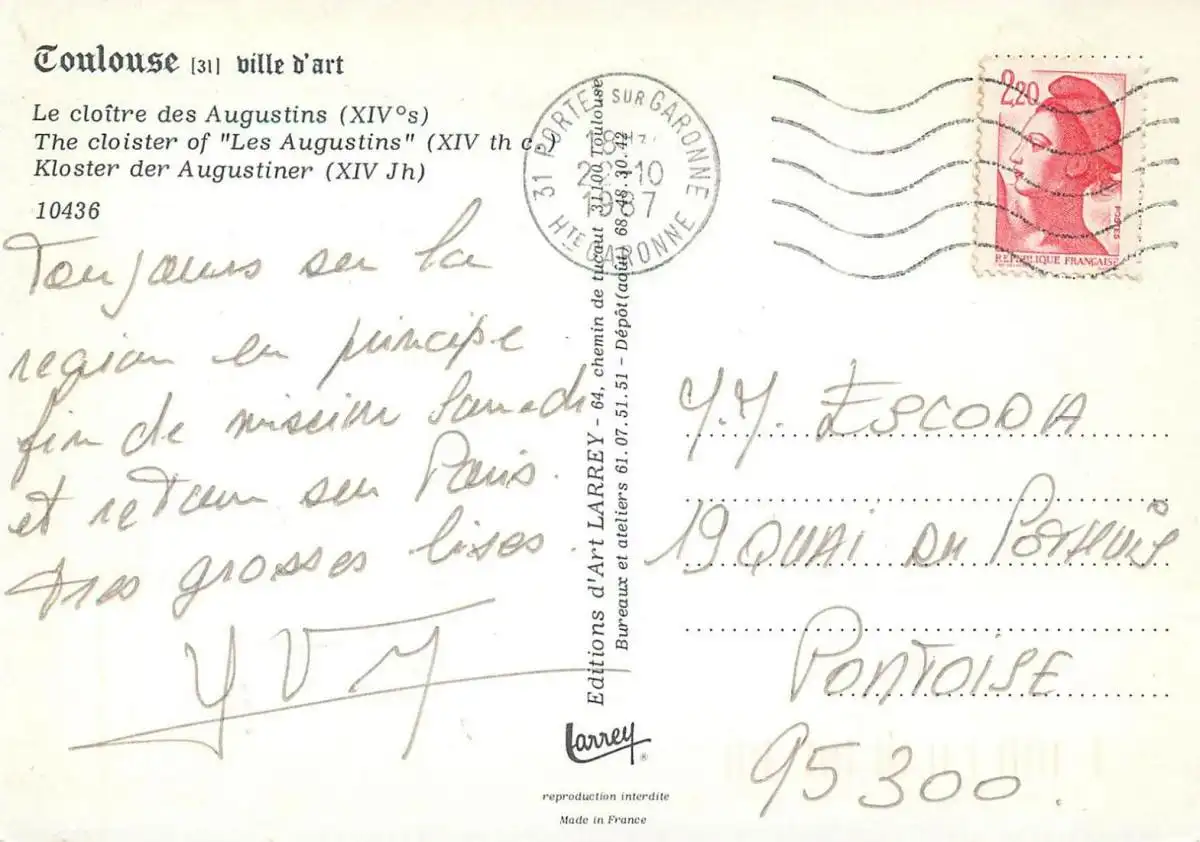 Toulouse [31] ville d'art
Le cloître des Augustins (XIV°s)
The cloister of "Les Augustins" (XIV th c.)
Kloster der Augustiner (XIV Jh)
10436
Toujours sur la
region en principe
fin de mission Samedi
et retour sur Paris.
très grosses bises.
31 PORTET SUR GARONNE
18H
10
1987
HTE GARONNE
2,20
POSTES
REPUBLIQUE FRANÇAISE
Editions d'Art LARREY - 64, chemin de tucaut 31100 Toulouse
Bureaux et ateliers 61.07.51.51 - Dépôt (août) 68.48.30.42
Larrey ®
reproduction interdite
Made in France
ESCODA
19 QUAI DU POTHUIS
PONTOISE
95300.